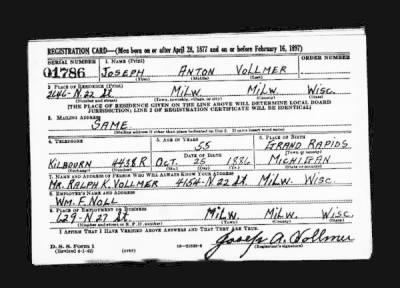 REGISTRATION CARD—(Men born on or after April 28, 1877 and on or before February 16, 1897)
SERIAL NUMBER 1. NAME (Print) ORDER NUMBER
U1786 JOSEPH ANTON VOLLMER
(First) (Middle) (Last)
2. PLACE OF RESIDENCE (Print)
2646-N 22 St. MILW. MILW. WISC.
(Number and street) (Town, township, village, or city) (County) (State)
[THE PLACE OF RESIDENCE GIVEN ON THE LINE ABOVE WILL DETERMINE LOCAL BOARD
JURISDICTION; LINE 2 OF REGISTRATION CERTIFICATE WILL BE IDENTICAL]
3. MAILING ADDRESS
SAME
[Mailing address if other than place indicated on line 2. If same insert word same]
4. TELEPHONE 5. AGE IN YEARS 6. PLACE OF BIRTH
55 GRAND RAPIDS
DATE OF BIRTH (Town or county)
KILBOURN 4438R OCT. 25 1886 MICHIGAN
(Exchange) (Number) (Mo.) (Day) (Yr.) (State or country)
7. NAME AND ADDRESS OF PERSON WHO WILL ALWAYS KNOW YOUR ADDRESS
MR. RALPH K. VOLLMER 4154-N 22 St. MILW. WISC.
8. EMPLOYER'S NAME AND ADDRESS
WM. F. NOLL
9. PLACE OF EMPLOYMENT OR BUSINESS
629-N 27 St. MILW. MILW. WISC.
(Number and street or R. F. D. number) (Town) (County) (State)
I AFFIRM THAT I HAVE VERIFIED ABOVE ANSWERS AND THAT THEY ARE TRUE.
D. S. S. Form 1
(Revised 4-1-42) (over) Joseph A. Vollmer
(Registrant's signature)